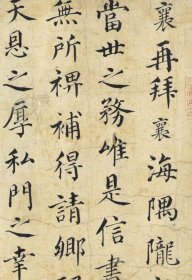 襄再拜襄海隅隴
當世之務唯是信書
無所裨補得請鄉
天恩之厚私門之幸